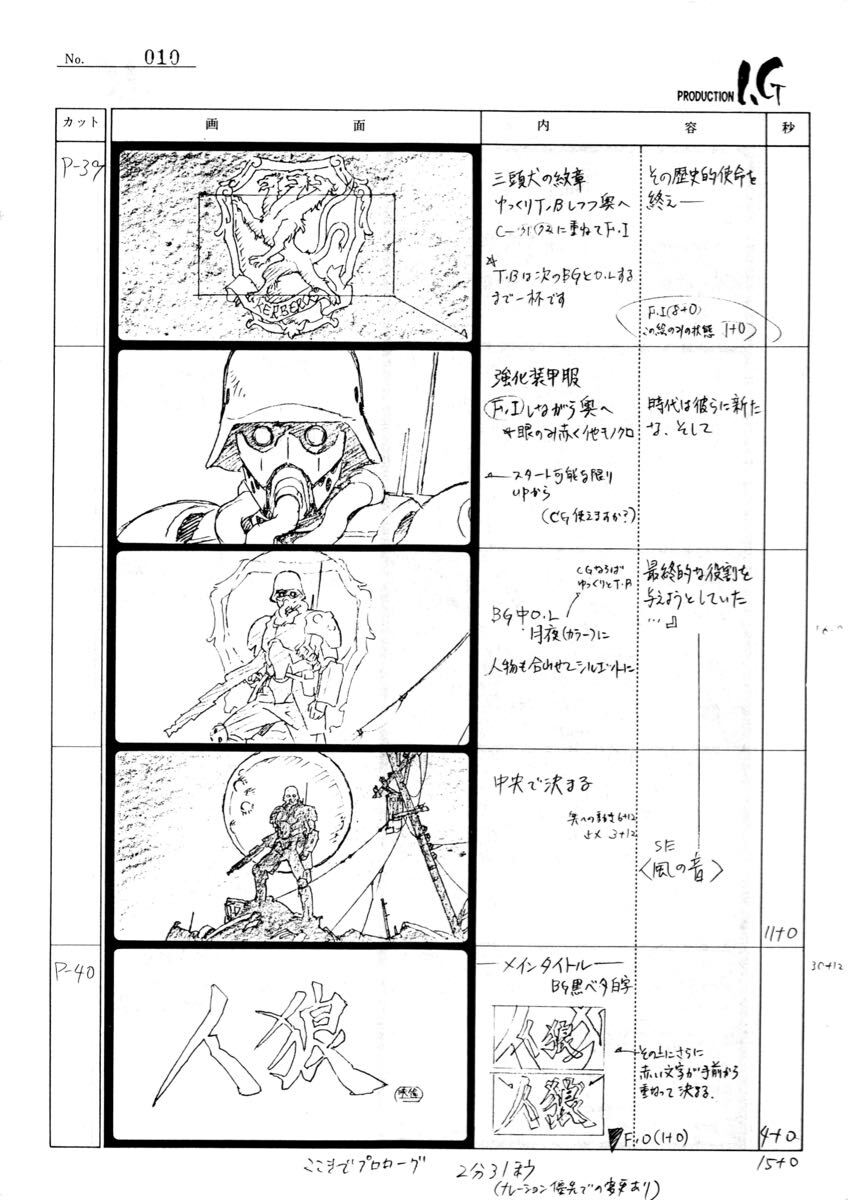 No. 010
PRODUCTION I.G
カット 画面 内容 秒
P-39
KERBEROS
三頭犬の紋章
ゆっくりT.Bしつつ奥へ
に重ねてF.I
T.Bは次のBGとO.Lする
まで一杯です
その歴史的使命を
終え——
F.I(8+0)
この絵のみの状態 1+0
強化装甲服
F.Iしながら奥へ
眼のみ赤く他モノクロ
←スタート可能な限り
UPから
(CG使えますか?)
時代は彼らに新た
な、そして
CGならば
ゆっくりとT.B
BG中O.L
月夜(カラー)に
人物も合わせてシルエットに
最終的な役割を
与えようとしていた
…』
中央で決まる
奥への動き6+12
止メ 3+12
SE
〈風の音〉
11+0
P-40
人狼
—メインタイトル—
BG黒ベタ白字
人狼
人狼
←その上にさらに
赤い文字が手前から
重ねって決まる.
F.O(1+0)
4+0
15+0
ここまでプロローグ 2分31秒
(ナレーション優先での変更あり)